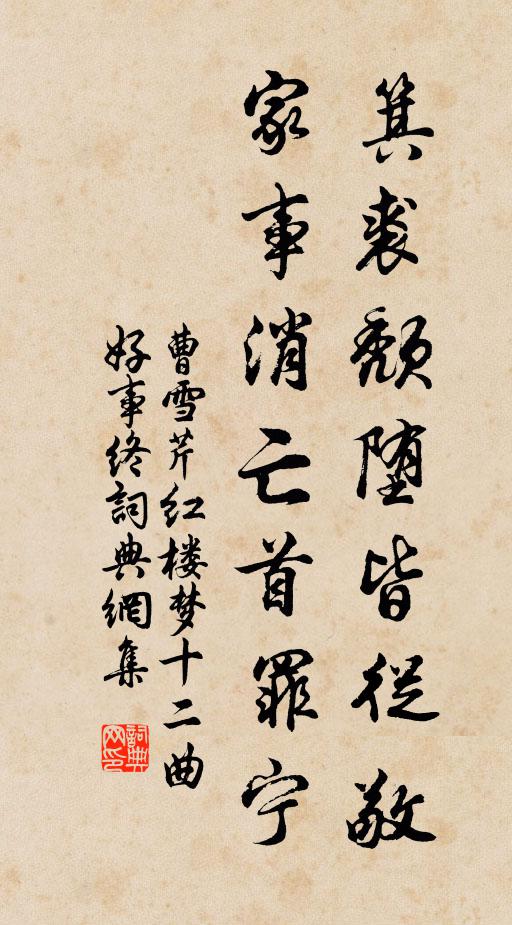 箕裘颓堕皆従敬
家事消亡首罪宁
曹雪芹红楼梦十二曲
好事终詞典網集
詞典网印